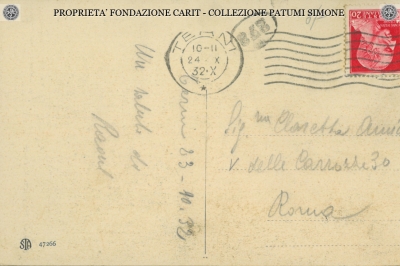 PROPRIETA' FONDAZIONE CARIT - COLLEZIONE PATUMI SIMONE
TERNI
10-11
24 X
32·X
Un saluto da
Terni 23-10-32
Sig.na Claretta
V. delle Carrozze 30
Roma
STA 47266